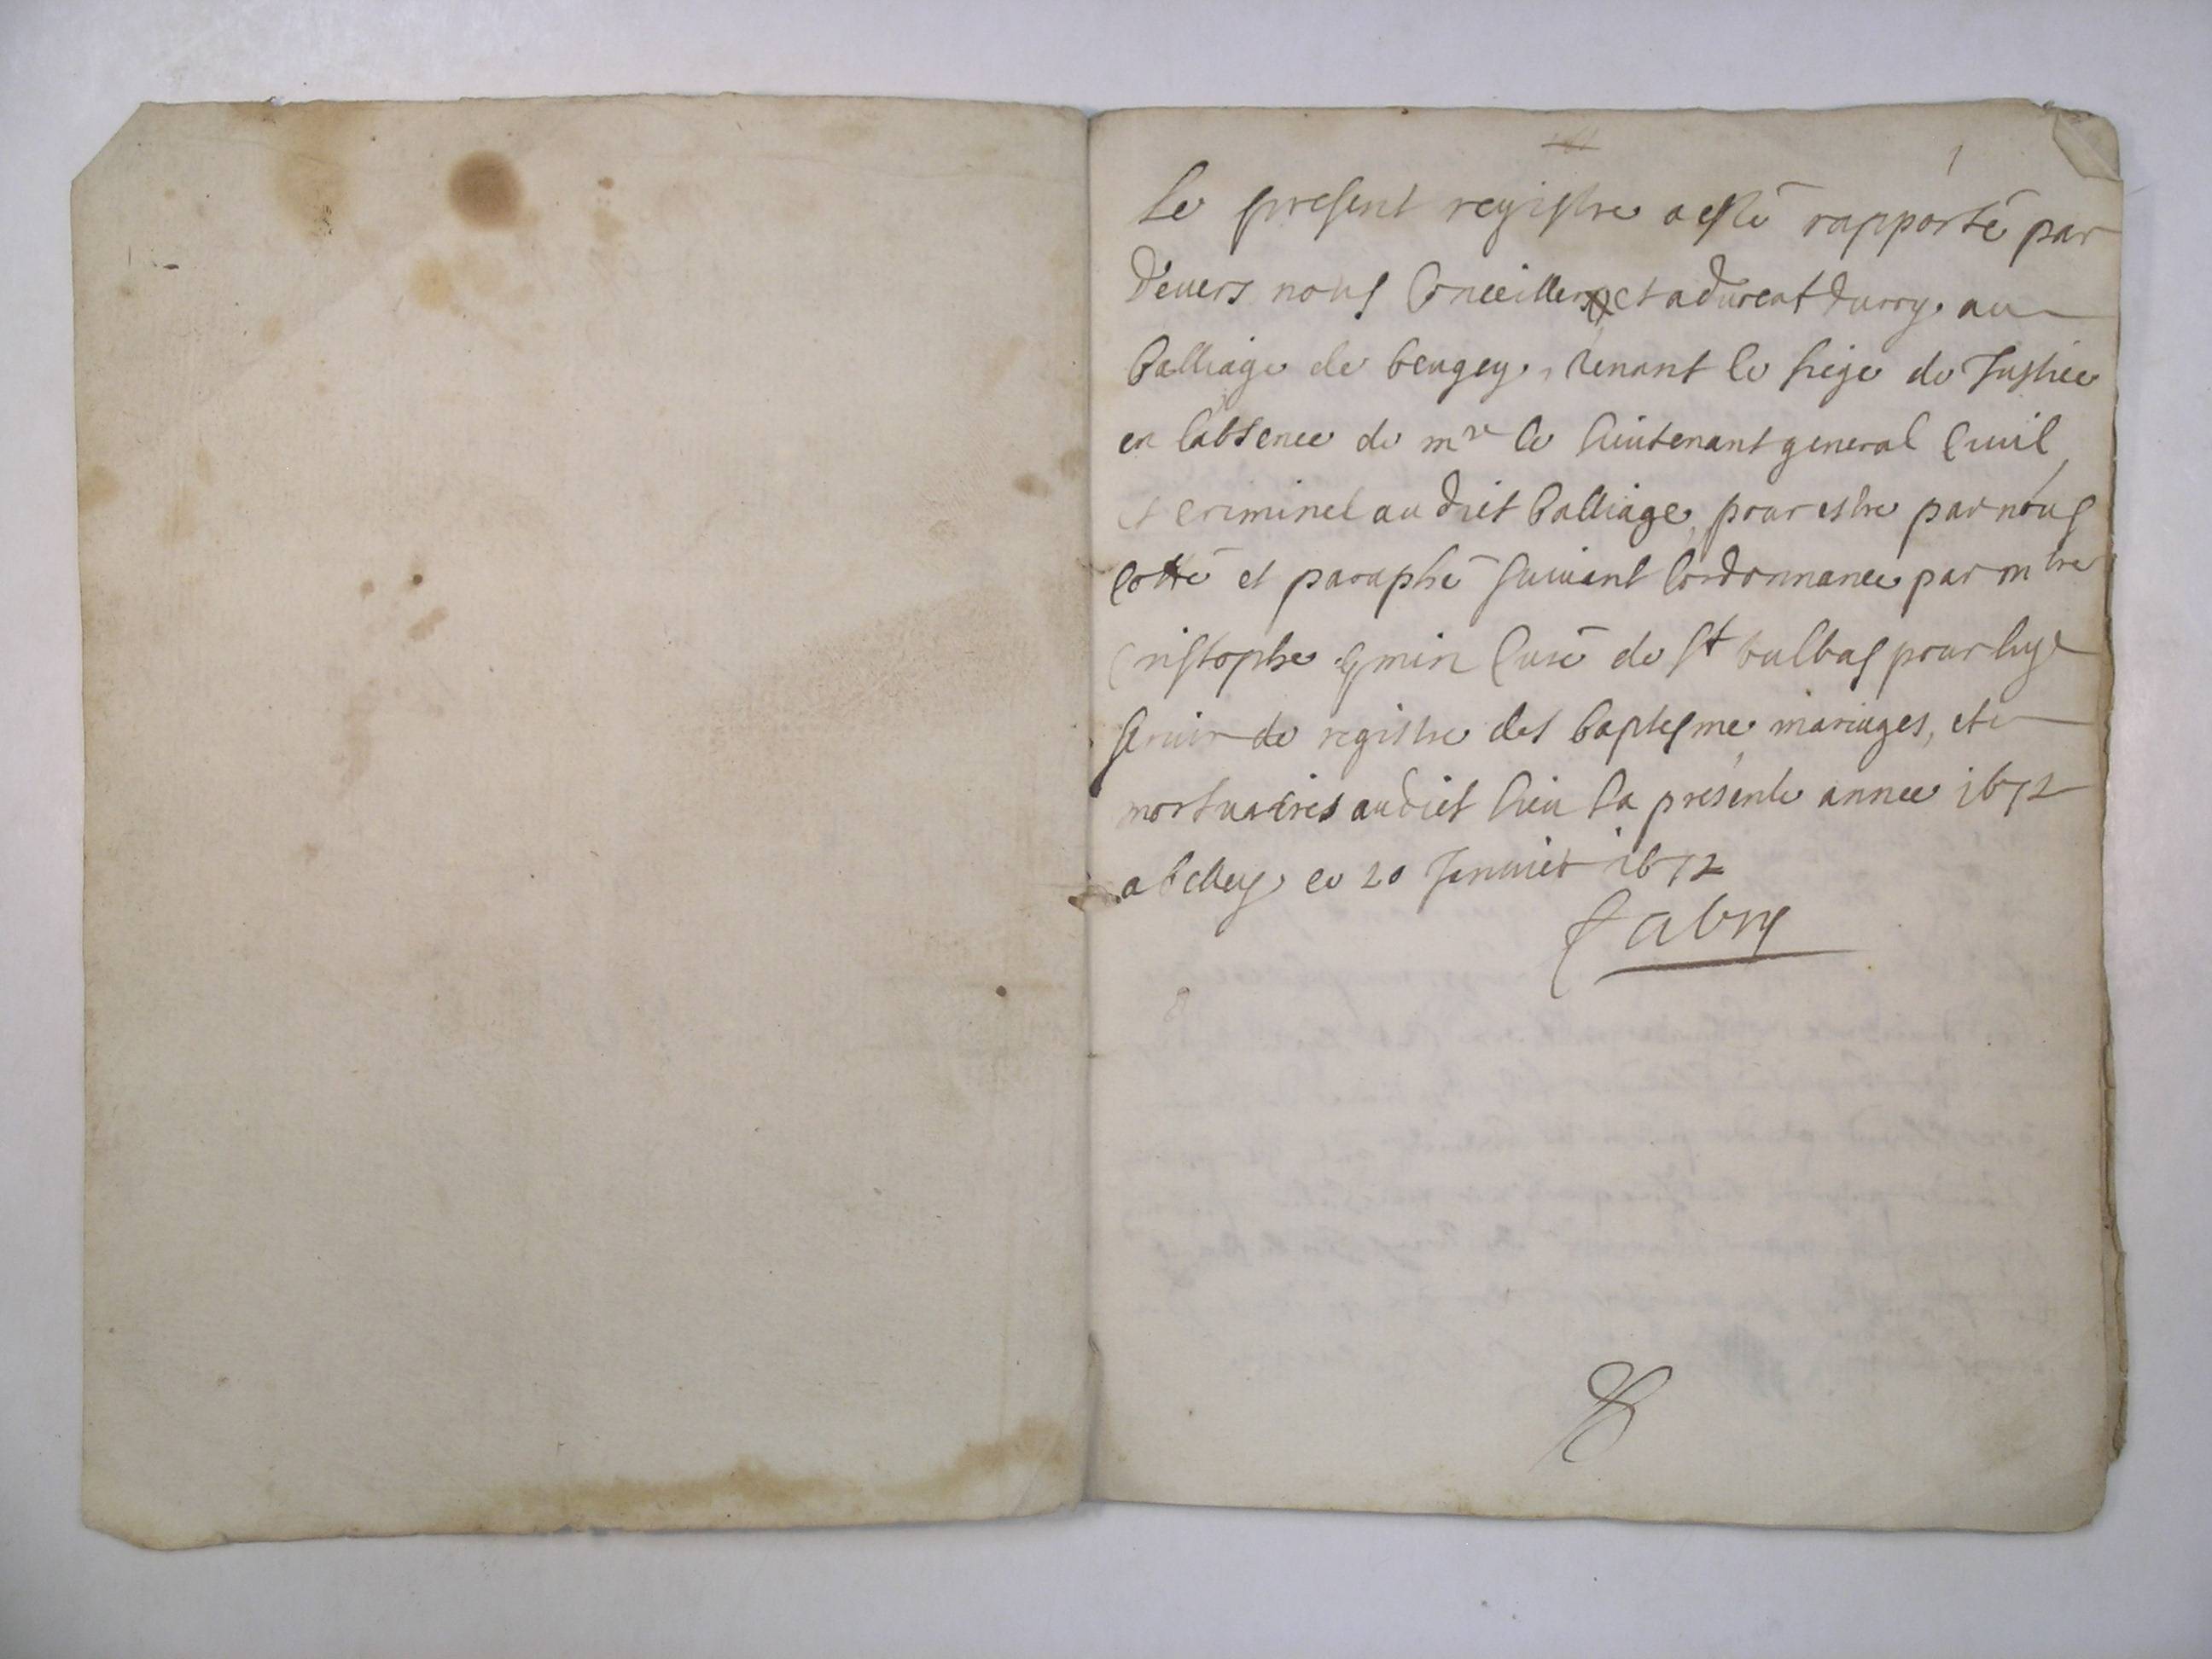 1
Le present registre a esté rapporté par
devers nous Conseiller et advocat du roy au
balliage de beugey, tenant le siege de Justice
en labsence de mr le lieutenant general Civil
et criminel audict balliage, pour estre par nous
cotté et paraphé suivant lordonnance par mtre
Cristophe Curé de St bulbas pour luy
servir de registre des baptesme, mariages, et
mortuaires audict lieu la présente annee 1672
a belley ce 20 Janvier 1672
fabry